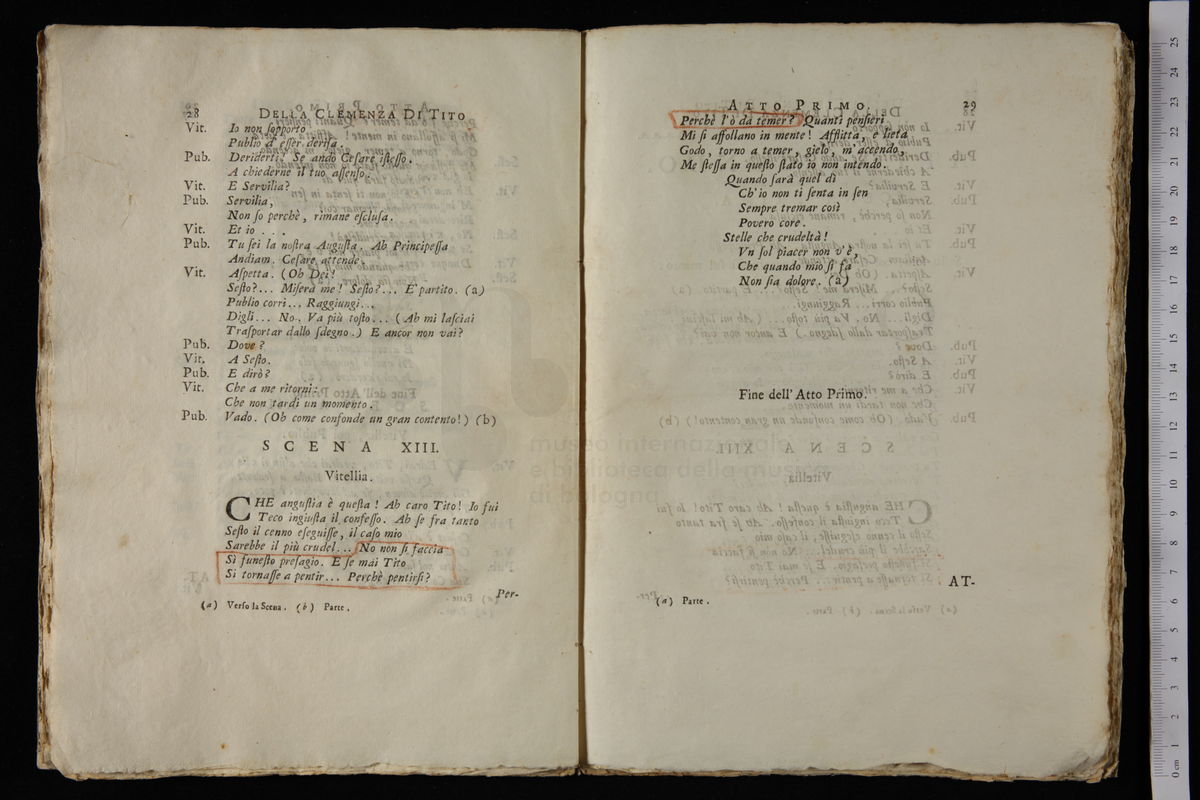 28 DELLA CLEMENZA DI TITO
Vit. Io non ſopporto
Publio d'eſſer deriſa.
Pub. Deriderti? Se andò Ceſare iſteſſo.
A chiederne il tuo aſſenſo.
Vit. E Servilia?
Pub. Servilia,
Non ſo perchè, rimane eſcluſa.
Vit. Et io . . .
Pub. Tu ſei la noſtra Auguſta. Ah Principeſſa
Andiam. Ceſare attende.
Vit. Aſpetta. (Oh Dei!
Seſto?... Miſera me! Seſto?... E' partito. (a)
Publio corri... Raggiungi...
Digli... No. Va più toſto... (Ah mi laſciai
Traſportar dallo ſdegno.) E ancor non vai?
Pub. Dove?
Vit. A Seſto.
Pub. E dirò?
Vit. Che a me ritorni:
Che non tardi un momento.
Pub. Vado. (Oh come confonde un gran contento!) (b)
SCENA XIII.
Vitellia.
CHE anguſtia è queſta! Ah caro Tito! Io fui
Teco ingiuſta il confeſſo. Ah ſe fra tanto
Seſto il cenno eſeguiſſe, il caſo mio
Sarebbe il più crudel... No non ſi faccia
Sì funeſto preſagio. E ſe mai Tito
Si tornaſſe a pentir... Perchè pentirſi?
Per-
(a) Verſo la Scena. (b) Parte.
ATTO PRIMO. 29
Perchè l'ò da temer? Quanti penſieri
Mi ſi affollano in mente! Afflitta, e lieta
Godo, torno a temer, gielo, m'accendo,
Me ſteſſa in queſto ſtato io non intendo.
Quando ſarà quel dì
Ch'io non ti ſenta in ſen
Sempre tremar così
Povero core.
Stelle che crudeltà!
Vn ſol piacer non v'è,
Che quando mio ſi fa
Non ſia dolore. (a)
Fine dell'Atto Primo.
AT-
(a) Parte.
museo internazionale
e biblioteca della musica
di bologna
25
24
23
22
21
20
19
18
17
16
15
14
13
12
11
10
9
8
7
6
5
4
3
2
1
0 cm